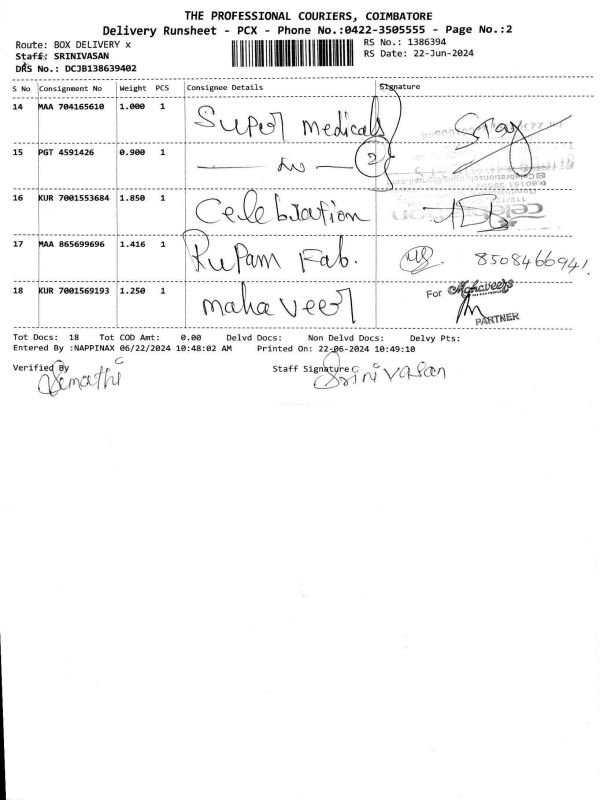 THE PROFESSIONAL COURIERS, COIMBATORE
Delivery Runsheet - PCX - Phone No.:0422-3505555 - Page No.:2
Route: BOX DELIVERY x
RS No.: 1386394
Staff: SRINIVASAN
RS Date: 22-Jun-2024
DRS No.: DCJB138639402
S No Consignment No Weight PCS Consignee Details Signature
14 MAA 704165610 1.000 1 Super medicals
15 PGT 4591426 0.900 1 2
16 KUR 7001553684 1.850 1 Celebration
17 MAA 865699696 1.416 1 Rupam Fab. 8508466941.
18 KUR 7001569193 1.250 1 mahaveer For Mahaveers
PARTNER
Tot Docs: 18 Tot COD Amt: 0.00 Delvd Docs: Non Delvd Docs: Delvy Pts:
Entered By :NAPPINAX 06/22/2024 10:48:02 AM Printed On: 22-06-2024 10:49:10
Verified By Staff Signature Srinivasan